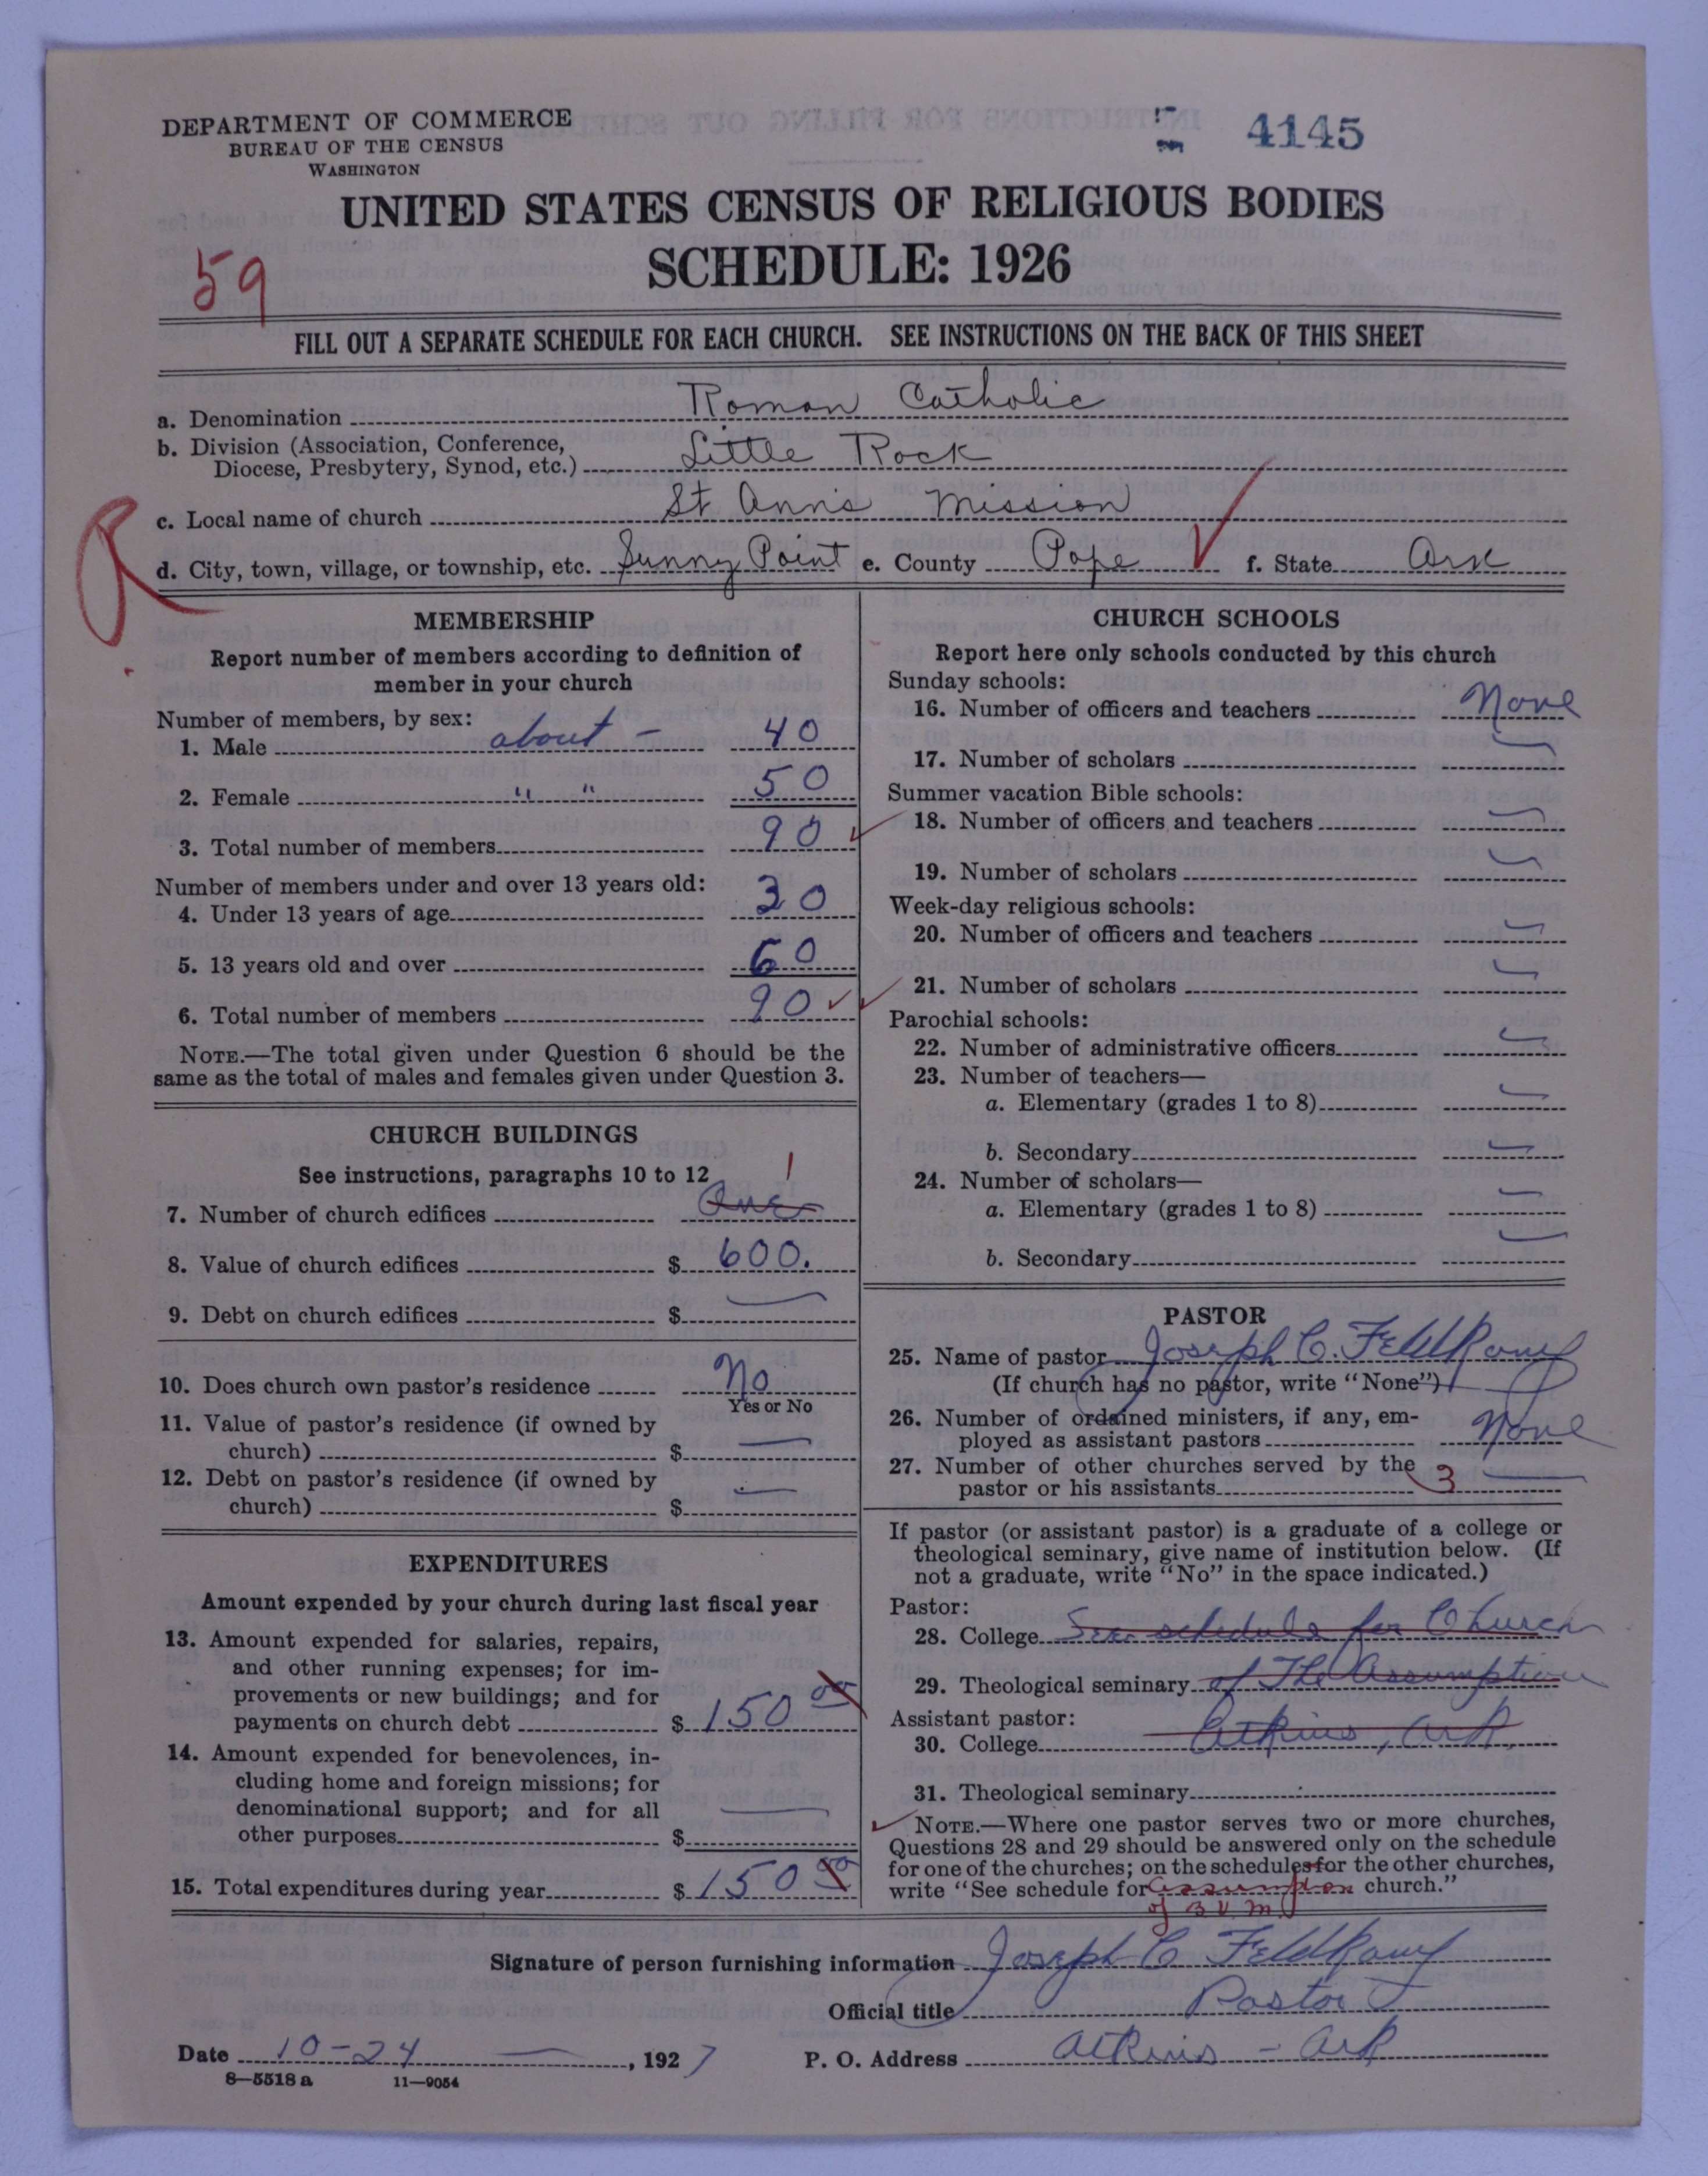 DEPARTMENT OF COMMERCE
BUREAU OF THE CENSUS
WASHINGTON
4145
UNITED STATES CENSUS OF RELIGIOUS BODIES
SCHEDULE: 1926
59
FILL OUT A SEPARATE SCHEDULE FOR EACH CHURCH. SEE INSTRUCTIONS ON THE BACK OF THIS SHEET
a. Denomination Roman Catholic
b. Division (Association, Conference,
Diocese, Presbytery, Synod, etc.) Little Rock
c. Local name of church St Ann's Mission
d. City, town, village, or township, etc. Sunny Point e. County Pope f. State Ark
R
MEMBERSHIP
Report number of members according to definition of
member in your church
Number of members, by sex:
1. Male about - 40
2. Female " " 50
3. Total number of members 90
Number of members under and over 13 years old:
4. Under 13 years of age 30
5. 13 years old and over 60
6. Total number of members 90
NOTE.—The total given under Question 6 should be the
same as the total of males and females given under Question 3.
CHURCH BUILDINGS
See instructions, paragraphs 10 to 12
1
7. Number of church edifices One
8. Value of church edifices $ 600.
9. Debt on church edifices $ —
10. Does church own pastor's residence No
Yes or No
11. Value of pastor's residence (if owned by
church) $ —
12. Debt on pastor's residence (if owned by
church) $ —
EXPENDITURES
Amount expended by your church during last fiscal year
13. Amount expended for salaries, repairs,
and other running expenses; for im-
provements or new buildings; and for
payments on church debt $ 150 00
14. Amount expended for benevolences, in-
cluding home and foreign missions; for
denominational support; and for all
other purposes $ —
15. Total expenditures during year $ 150 00
CHURCH SCHOOLS
Report here only schools conducted by this church
Sunday schools:
16. Number of officers and teachers None
17. Number of scholars —
Summer vacation Bible schools:
18. Number of officers and teachers —
19. Number of scholars —
Week-day religious schools:
20. Number of officers and teachers —
21. Number of scholars —
Parochial schools:
22. Number of administrative officers —
23. Number of teachers—
a. Elementary (grades 1 to 8) —
b. Secondary —
24. Number of scholars—
a. Elementary (grades 1 to 8) —
b. Secondary —
PASTOR
25. Name of pastor Joseph C. Feldkamp
(If church has no pastor, write "None")
26. Number of ordained ministers, if any, em-
ployed as assistant pastors None
27. Number of other churches served by the
pastor or his assistants 3 —
If pastor (or assistant pastor) is a graduate of a college or
theological seminary, give name of institution below. (If
not a graduate, write "No" in the space indicated.)
Pastor:
28. College See schedule for Church
29. Theological seminary of The Assumption
Assistant pastor:
30. College Atkins, Ark.
31. Theological seminary
NOTE.—Where one pastor serves two or more churches,
Questions 28 and 29 should be answered only on the schedule
for one of the churches; on the schedules for the other churches,
write "See schedule for Assumption church."
of B V M
Signature of person furnishing information Joseph C Feldkamp
Official title Pastor
Date 10-24 —, 1927 P. O. Address Atkins - Ark
8—5518 a 11—9054